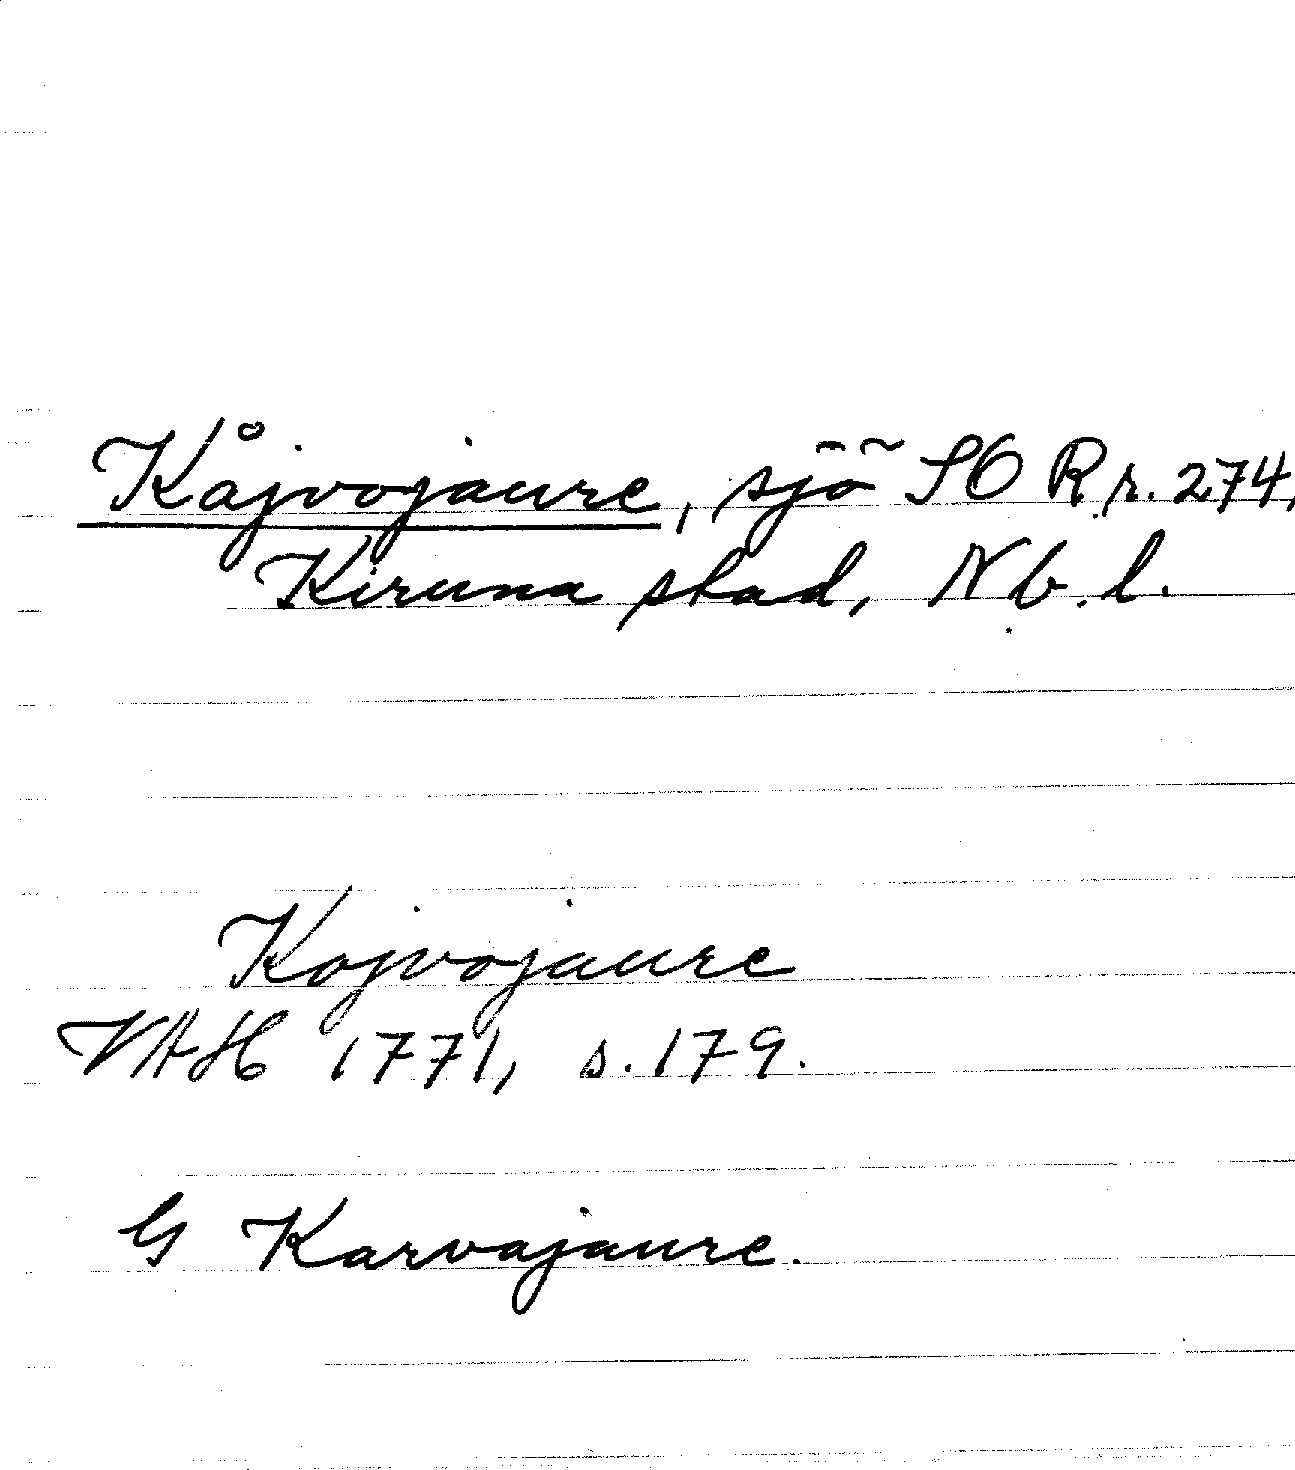 Kåjvojaure, sjö SO R.r. 274,
Kiruna stad, Nb. l.
Kojvojaure
VAH 1771, s. 179.
G Karvajaure.